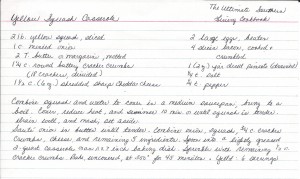 Yellow Squash Casserole
The Ultimate Southern
Living Cookbook
2 lb. yellow squash, sliced
1 c. minced onion
2 T. butter or margarine, melted
1 1/4 c. round buttery cracker crumbs
(, divided)
1 1/2 c. (6 oz) shredded sharp cheddar cheese
2 large eggs, beaten
4 slices bacon, cooked &
crumbled
1 (2 oz) jar diced pimiento (drained)
1/4 t. salt
1/4 t. pepper
Combine squash and water to cover in a medium saucepan, bring to a
boil. Cover, reduce heat, and simmer 10 min or until squash is tender.
Drain well, and mash, set aside.
Sauté onion in butter until tender. Combine onion, squash, 3/4 c. cracker
crumbs, cheese and remaining 5 ingredients. Spoon into a lightly greased
2-quart casserole. Sprinkle with remaining 1/2 c.
cracker crumbs. Bake, uncovered, at 350° for 45 minutes. Yield: 6 servings